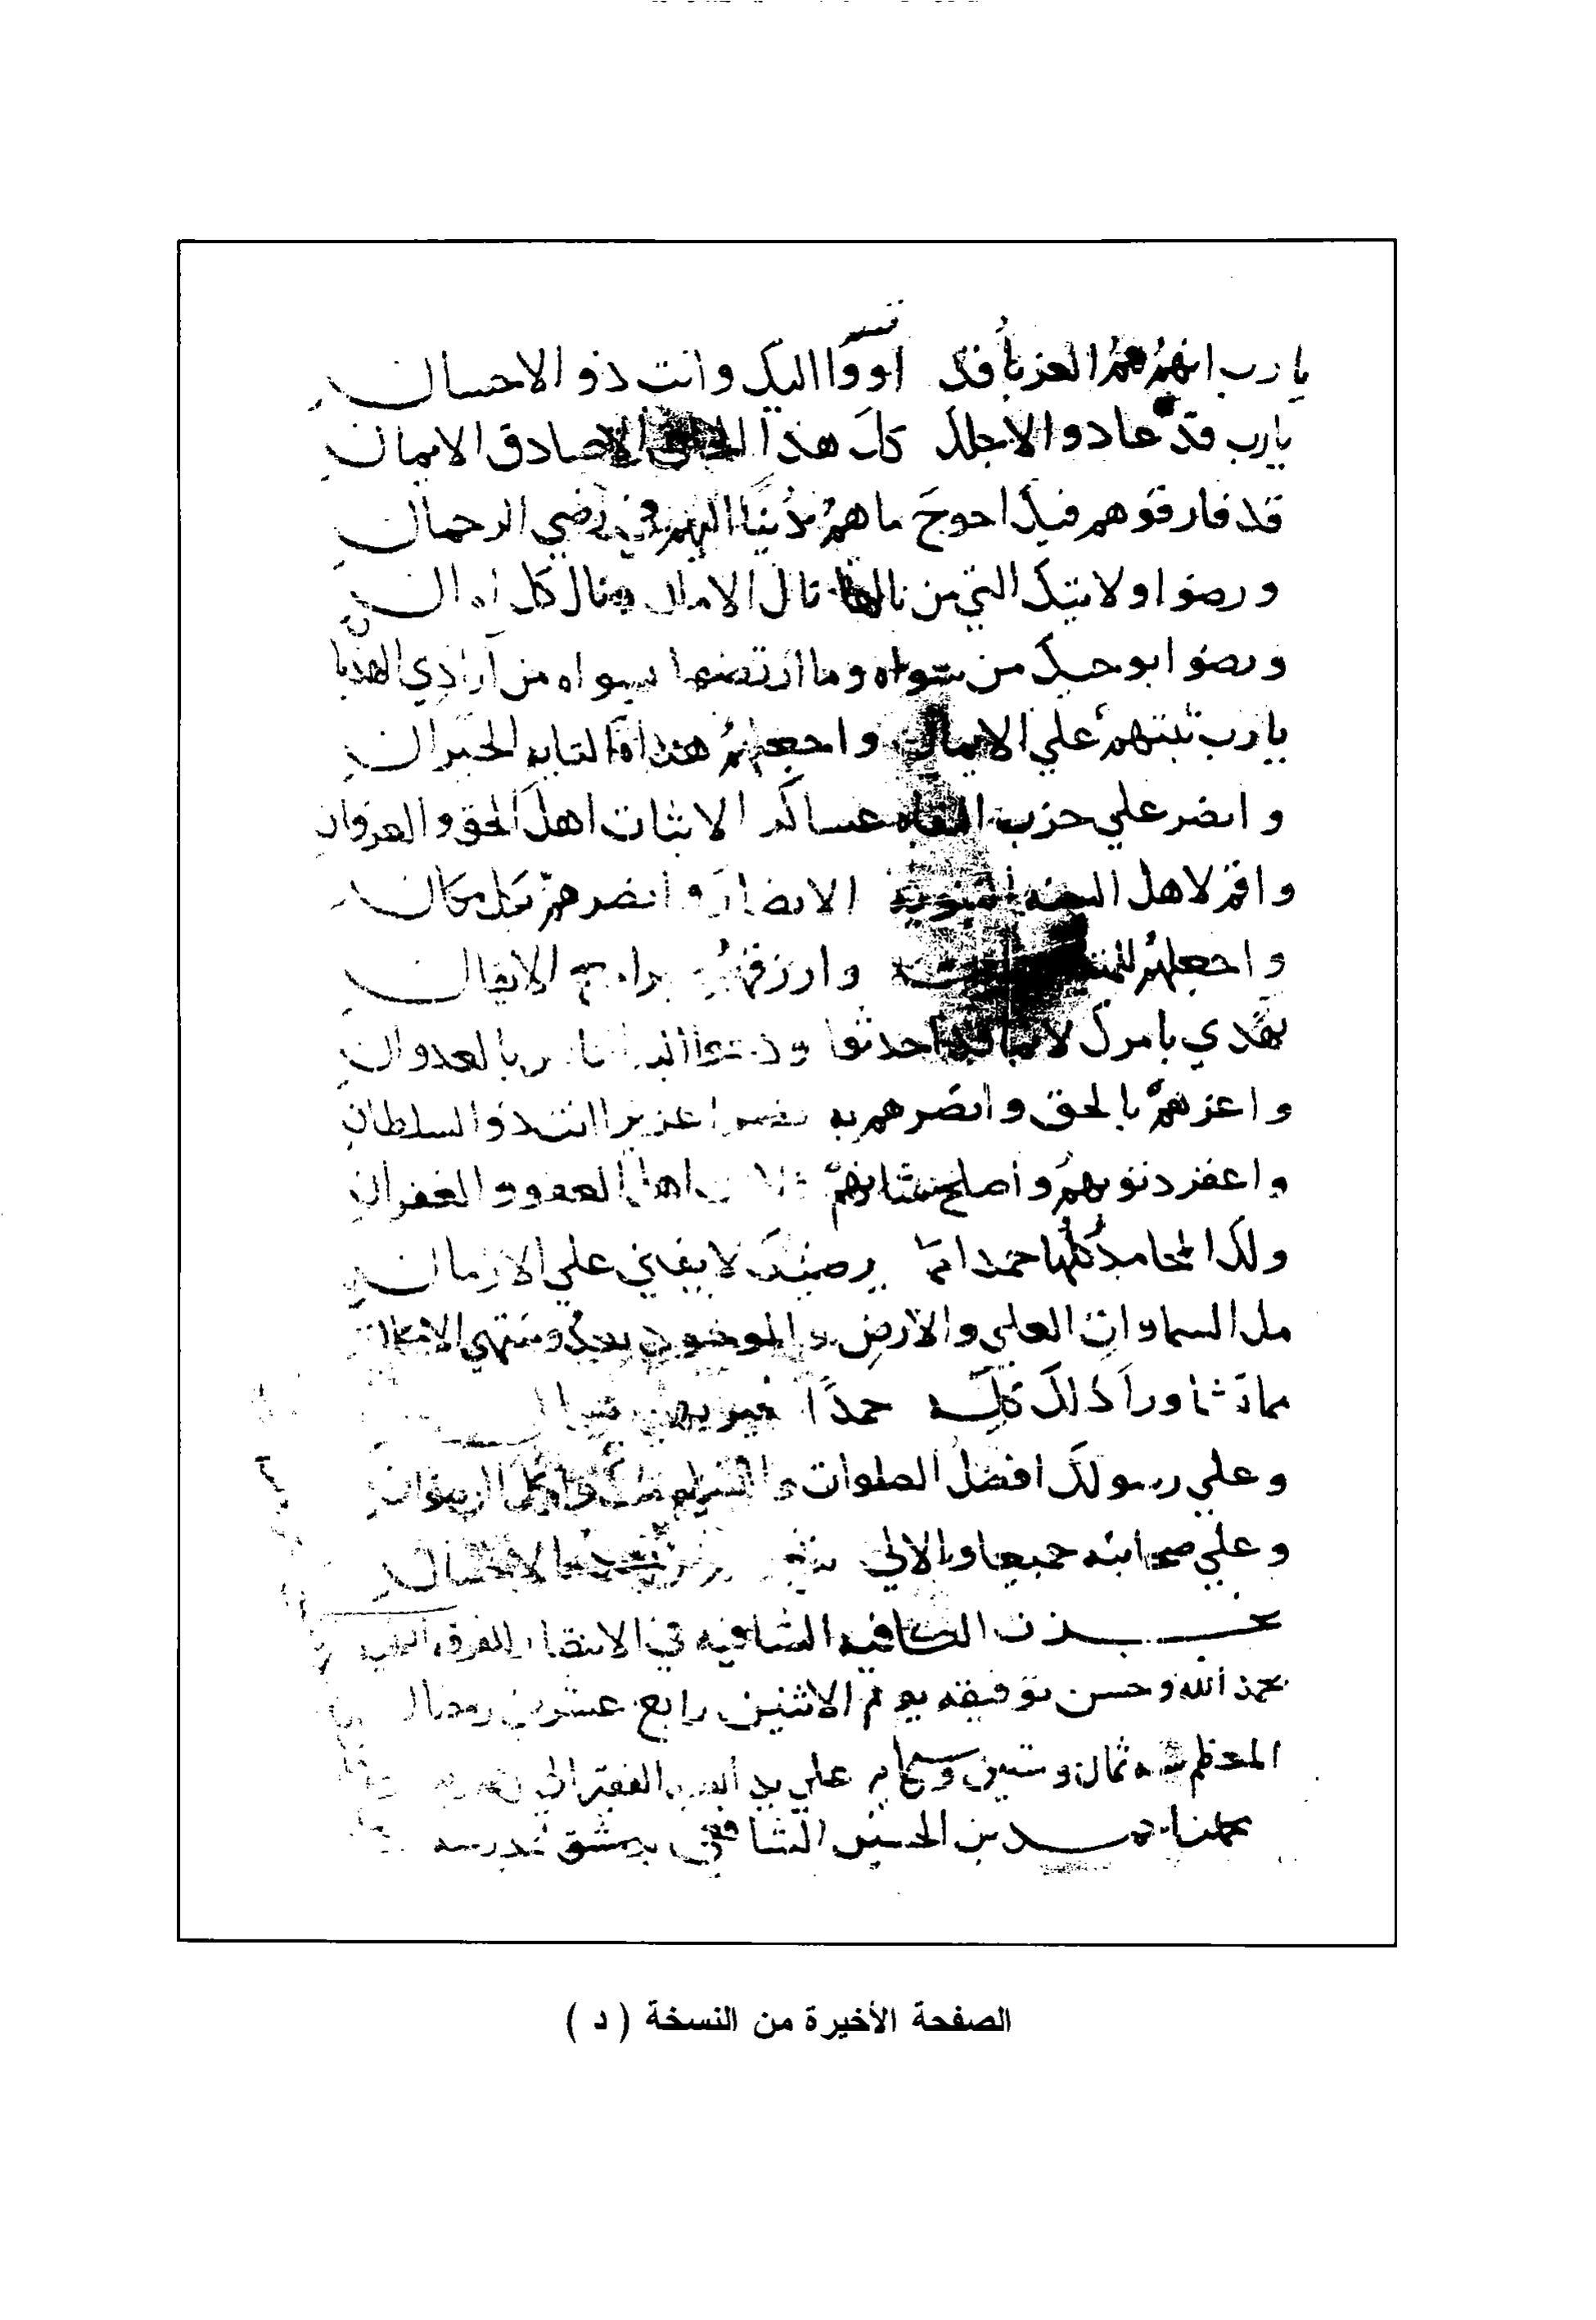 يا رب انهم هم الغربا قد اووا اليك وانت ذو الاحسان
يا رب قد عادوا لاجلك كل هذا الخلق الا صادق الايمان
قد فارقوهم فيك احوج ما هم دنيا اليهم في رضي الرحمان
ورضوا ولايتك التي من نالها نال الامان ونال كل امان
ورضوا بوحيك من سواه وما ارتضوا بسواه من آرا ذي الهذيان
يا رب ثبتهم علي الايمان واجعلهم هداة التايه الحيران
وانصر علي حزب النفاة عساكر الاثبات اهل الحق والعرفان
واقم لاهل السنة النبوية الانصار وانصرهم بكل مكان
واجعلهم للمتقين وارزقهم والايقان
تهدي بامرك لا بما قد احدثوا ودعوا اليه بالعدوان
واعزهم بالحق وانصرهم به نصرا عزيزا انت ذو السلطان
واغفر ذنوبهم وأصلح شانهم اهل العفو والغفران
ولك المحامد كلها حمدا كما يرضيك لا يفني علي الازمان
مل السماوات العلي والارض والموجود بعد ومنتهي الامكان
مما تشا ورا ذلك كله حمدًا بغير نهاية
وعلي رسولك افضل الصلوات والتسليم منك واكمل الرضوان
وعلي صحابته جميعا والالي من بعد بالاحسان
نجزت الكافية الشافية في الانتصار للفرقة الناجية
بحمد الله وحسن توفيقه يوم الاثنين رابع عشر من رمضان
المعظم سنه ثمان وستين وسبعمايه علي يد العبد الفقير الي
بن الحسين الشافعي بدمشق
الصفحة الأخيرة من النسخة ( د )